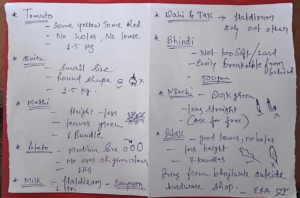 * Tomato
- Some yellow Some Red
- No holes, No loose
1.5 kg
* Onion
- Small size
- Round shape
- 1.5 kg.
* Methi
- Height - less
- leaves green
- 1 Bundle
* Potato
- Medium Size
- No eyes or germinations
1 kg
* Milk -
1 ltr
* Dahi &
only not others
* Bhindi
- Not too Soft / hard
- Easily breakable from behind
- 500 gm
* Mirchi - Dark green
- long straight
- (Ask for free)
* Palak - good leaves, no holes
- less height
- 2 bundles
Bring from outside
hardware shop.